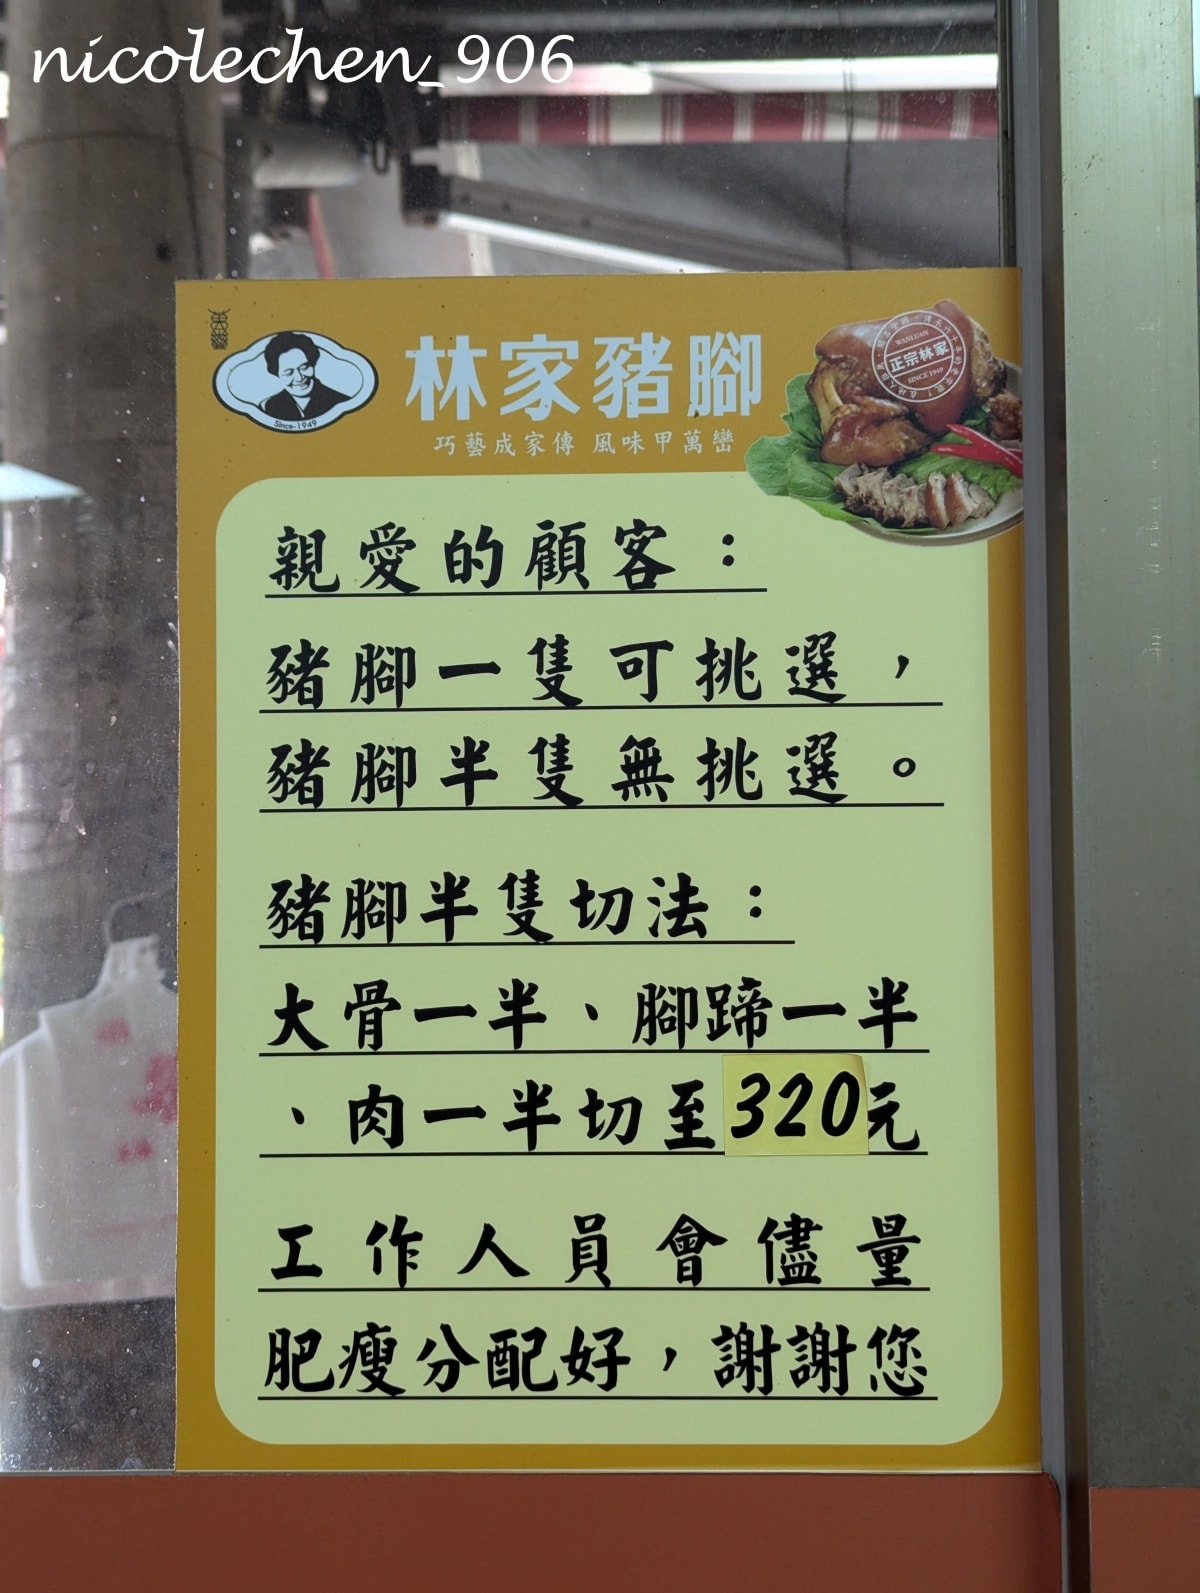 nicolechen_906
萬巒
林家豬腳
巧藝成家傳 風味甲萬巒
Since-1949
WANLUAN
正宗林家
SINCE 1949
親愛的顧客：
豬腳一隻可挑選，
豬腳半隻無挑選。
豬腳半隻切法：
大骨一半、腳蹄一半
、肉一半切至320元
工作人員會儘量
肥瘦分配好，謝謝您